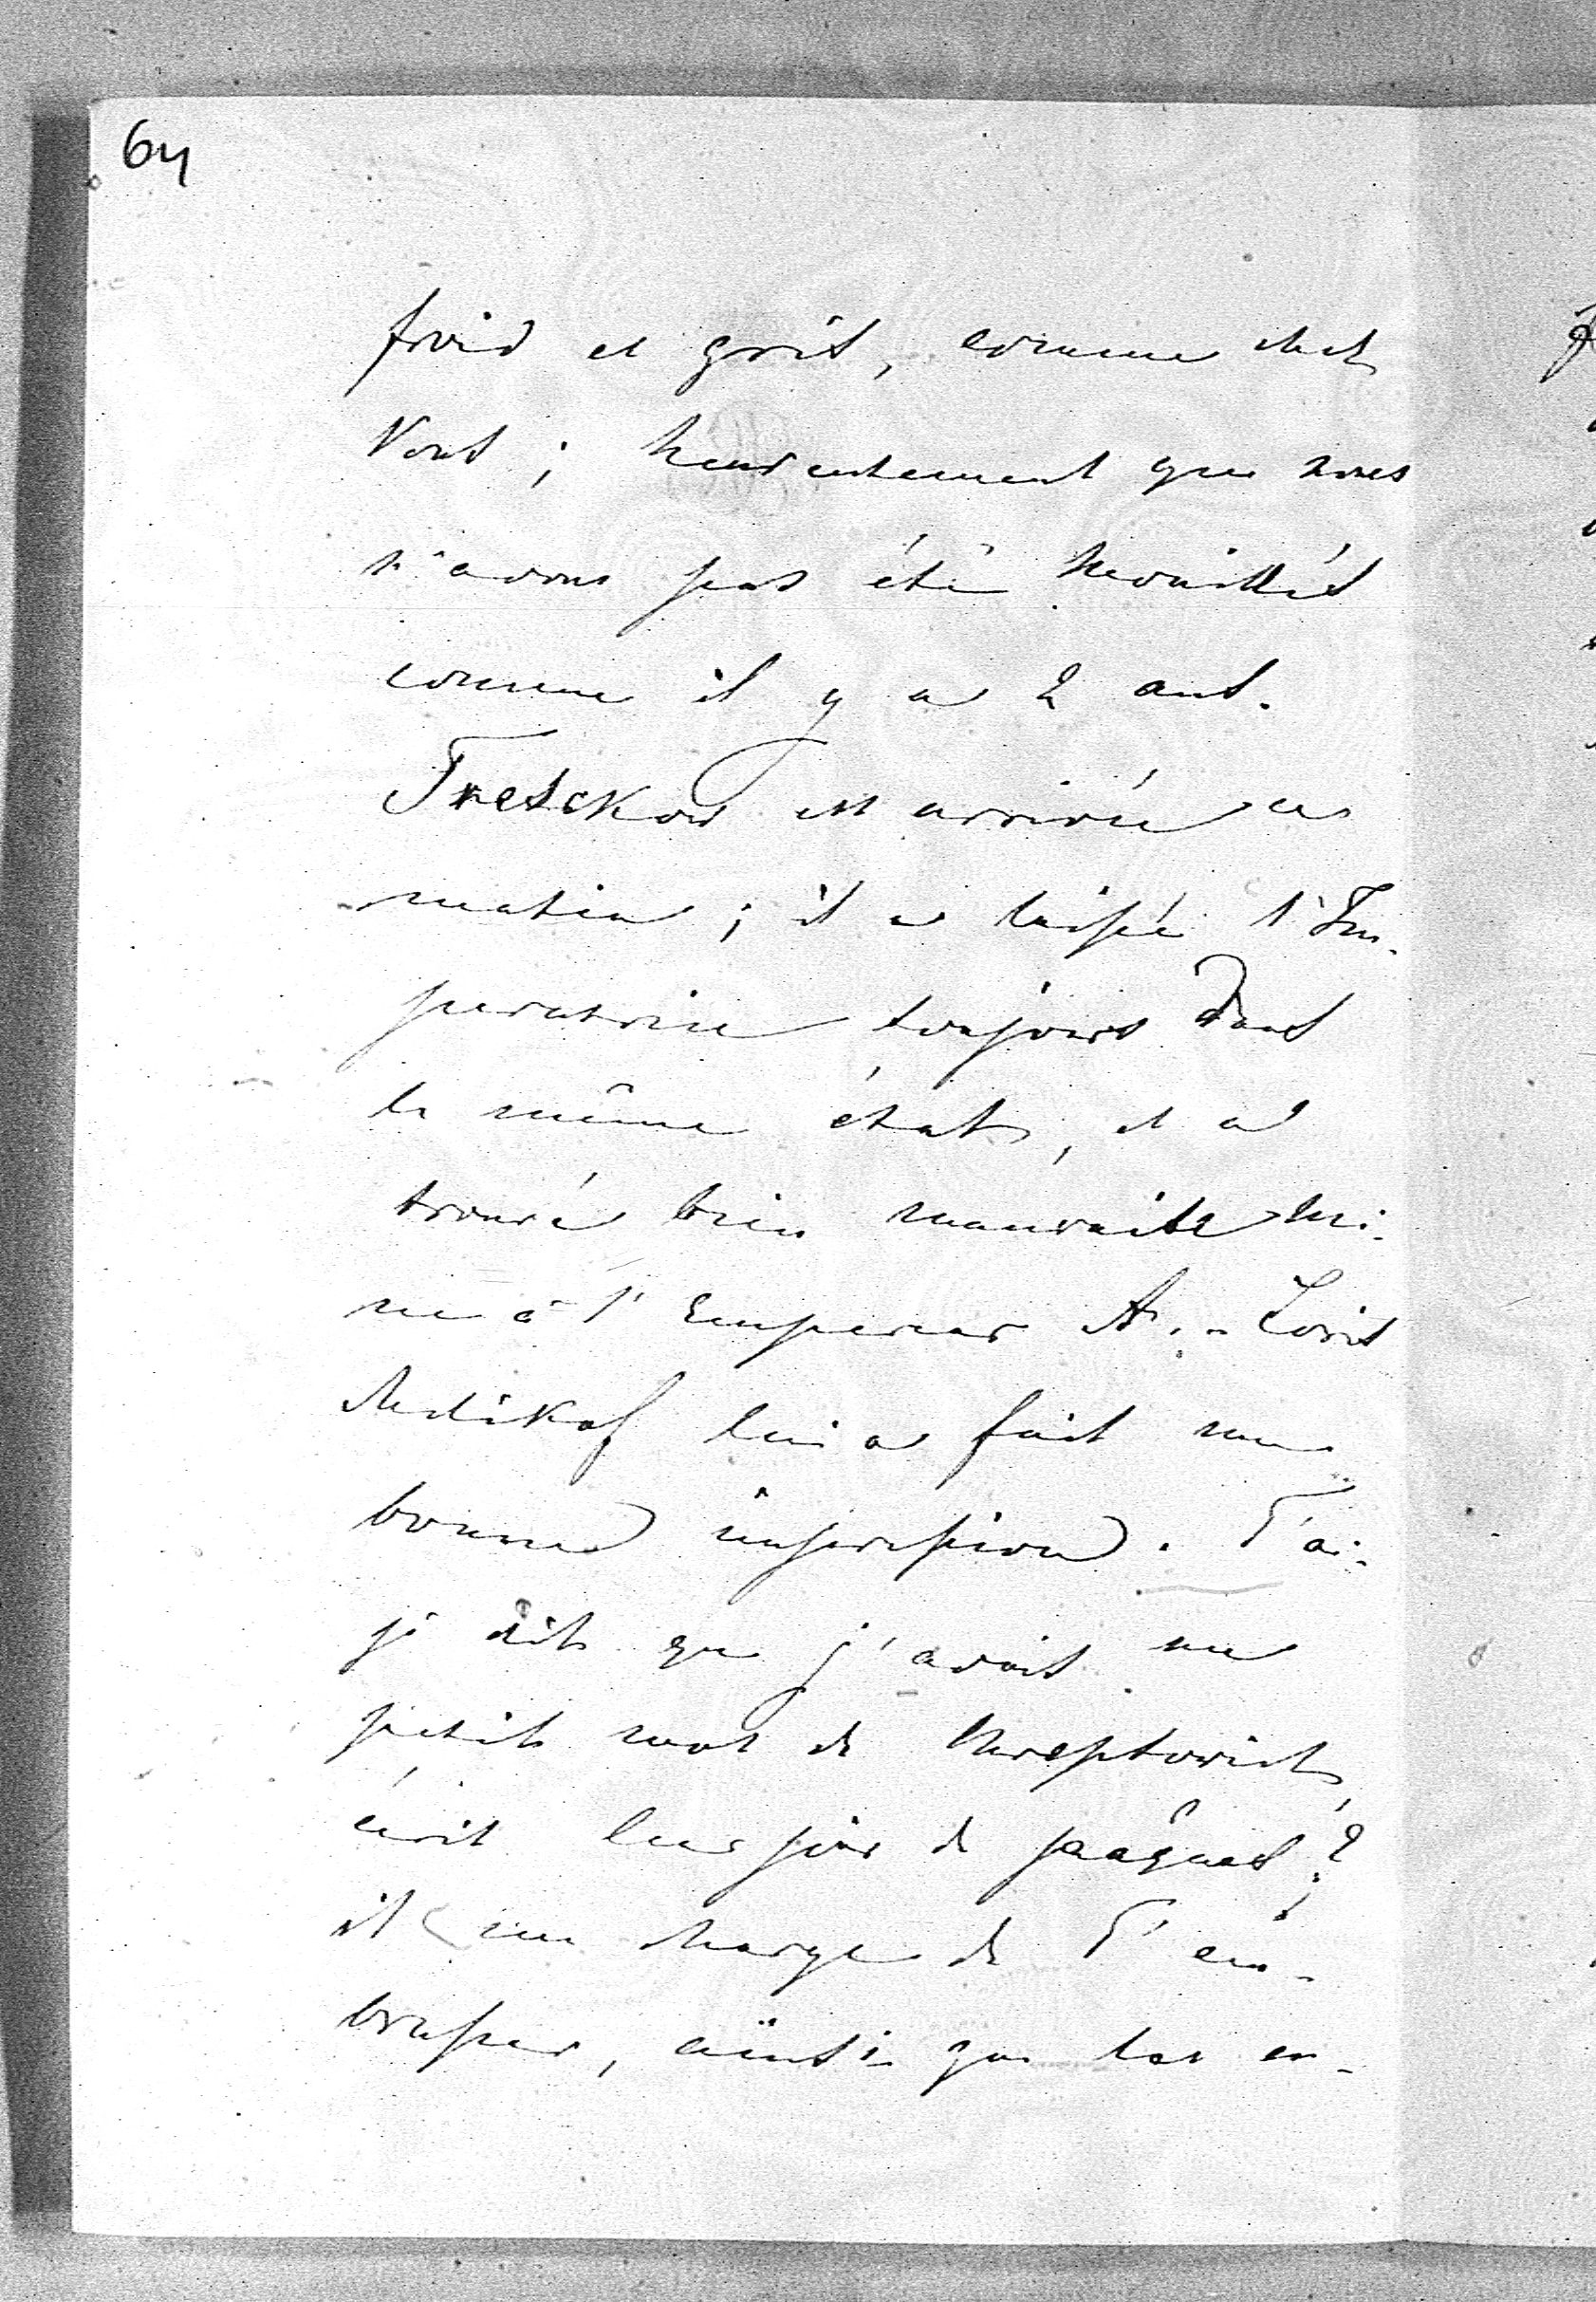 64
froid et gris, comme chez
Vous ; heureusement que nous
n'avons pas été mouillés
comme il y a 2 ans.
Tresckow est arrivé ce
matin ; il a laissé l'Im-
peratrice toujours dans
le même état, et a
trouvé bien mauvaise mi-
ne à l'Empereur A. - Loris
Melikof lui a fait une
bonne impression. T'ai-
je dit que j'avais un
petit mot de
écrit le jour de pâques ?
il me charge de T'em-
brasser, ainsi que les en-